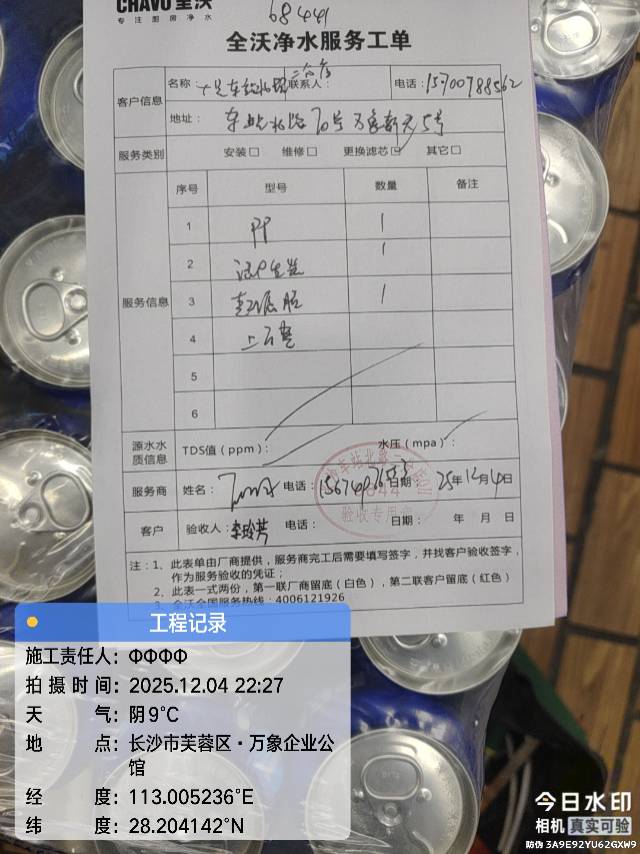 CHAVO 全沃
专注厨房净水
68441
全沃净水服务工单
客户信息
名称
联系人：
电话：15700788562
地址：车站北路70号万象新天5号
服务类别
安装□ 维修□ 更换滤芯☑ 其它□
服务信息
序号 型号 数量 备注
1 PP 1
2 1
3 1
4
5
6
源水水质信息
TDS值（ppm）： 水压（mpa）：
服务商 姓名： 电话： 日期：25年12月4日
客户 验收人：李玲芳 电话： 日期： 年 月 日
验收专用章
注：1、此表单由厂商提供，服务商完工后需要填写签字，并找客户验收签字，
作为服务验收的凭证；
2、此表一式两份，第一联厂商留底（白色），第二联客户留底（红色）
3、全沃全国服务热线：4006121926
工程记录
施工责任人：ΦΦΦΦ
拍摄时间：2025.12.04 22:27
天气：阴9℃
地点：长沙市芙蓉区·万象企业公
馆
经度：113.005236°E
纬度：28.204142°N
今日水印
相机 真实可验
防伪 3A9E92YU62GXW9